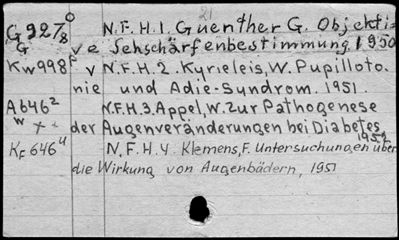 21
G 927/8° N.F.H.1. Guenther G. Objekti-
G ve Sehschärfenbestimmung 1950
Kw998P v N.F.H.2. Kyrieleis, W. Pupilloto-
nie und Adie-Syndrom. 1951.
A646² N.F.H.3. Appel, W. Zur Pathogenese
w ++ der Augenveränderungen bei Diabetes
1952
KF646⁴ N.F.H.4. Klemens, F. Untersuchungen über
die Wirkung von Augenbädern, 1951